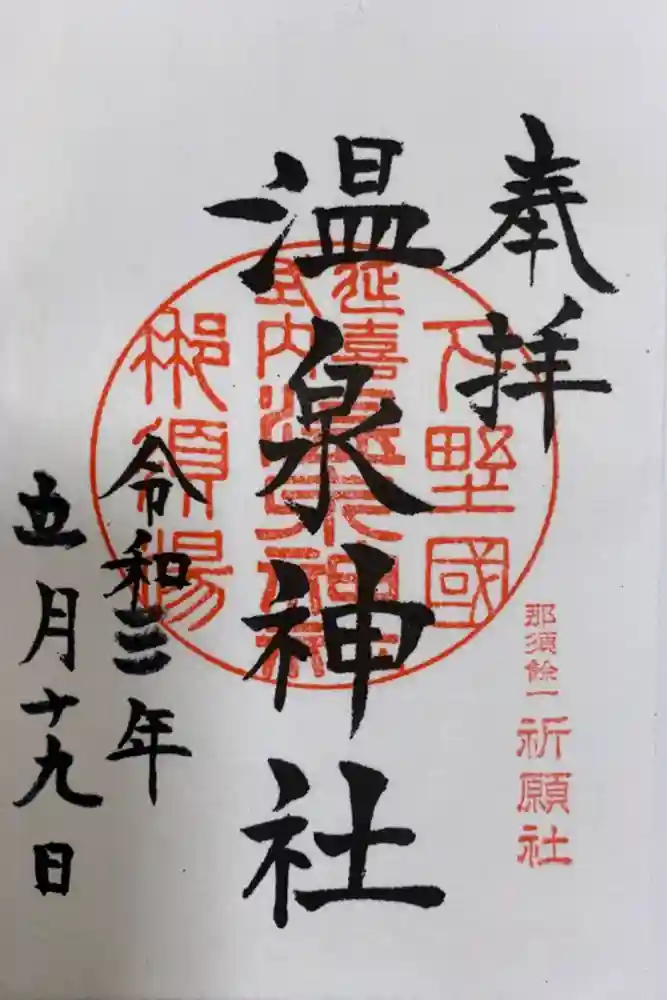 奉拝
那須餘一祈願社
下野國
延喜
式内
温泉神社
那須湯
温泉神社
令和三年
五月十九日